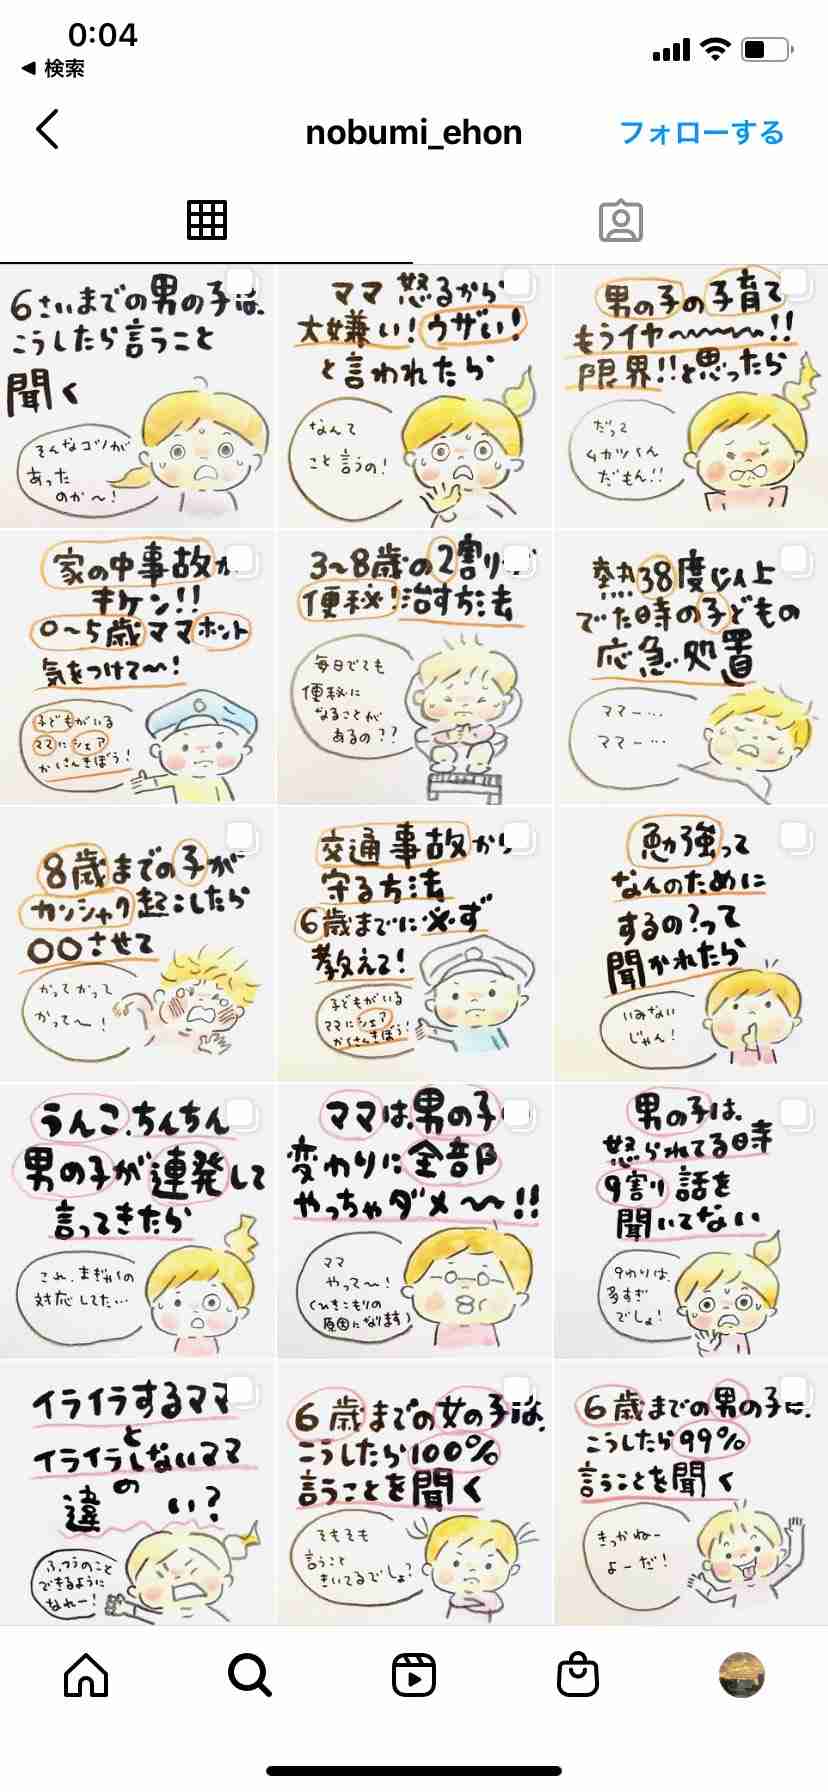 0:04
◀ 検索
nobumi_ehon
フォローする
6さいまでの男の子は、
こうしたら言うこと
聞く
そんなコツが
あった
のか〜!
ママ 怒るから
大嫌い!ウザい!
と言われたら
なんて
こと言うの!
男の子の子育て
もうイヤ〜〜〜〜!!
限界!!と思ったら
だって
ムカツくん
だもん!!
家の中事故が
キケン!!
0〜5歳ママホント
気をつけて〜!
子どもがいる
ママにシェア
かくさんきぼう!
3〜8歳の2割が
便秘!治す方法
毎日でても
便秘に
なることが
あるの??
熱38度以上
でた時の子どもの
応急処置
ママー…
ママー…
8歳までの子が
カンシャク起こしたら
〇〇させて
かってかって
かって〜!
交通事故から
守る方法
6歳までに必ず
教えて!
子どもがいる
ママにシェア
かくさんきぼう!
勉強って
なんのために
するの?って
聞かれたら
いみない
じゃん!
うんこ、ちんちん
男の子が連発して
言ってきたら
これ、まぎゃくの
対応してた…
ママは、男の子の
変わりに全部
やっちゃダメ〜!!
ママ
やって〜!
(ひきこもりの
原因になります)
男の子は、
怒られてる時
9割り話を
聞いてない
9わりは、
多すぎ
でしょ!
イライラするママ
と
イライラしないママ
の
違い?
ふつうのこと
できるように
なれー!
6歳までの女の子は、
こうしたら100%
言うことを聞く
そもそも
言うこと
きいてるでしょ?
6歳までの男の子は、
こうしたら99%
言うことを聞く
きっかねー
よーだ!